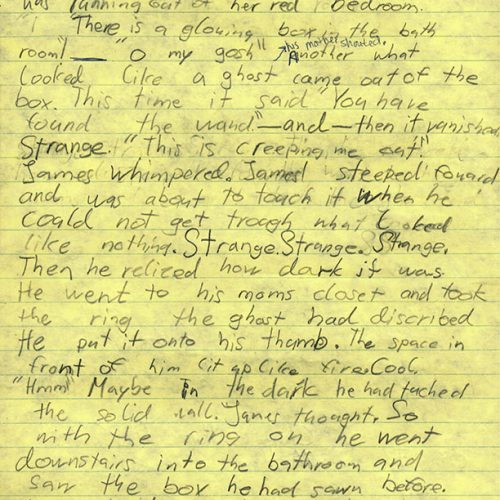 was running out of her red bedroom.
"There is a glowing box in the bath
room" — "O my gosh" his mother shouted. Another what
looked like a ghost came out of the
box. This time it said "You have
found the wand." — and — then it vanished
Strange. "This is creeping me out!"
James whimpered. James steeped foward
and was about to touch it when he
could not get trough what looked
like nothing. Strange. Strange. Strange.
Then he relized how dark it was
He went to his moms closet and took
the ring the ghost had discribed
He put it onto his thumb. The space in
front of him lit up like fire. Cool
"Hmm" Maybe in the dark he had tuched
the solid wall. James thought. So
with the ring on he went
downstairs into the bathroom and
saw the box he had sawn before.